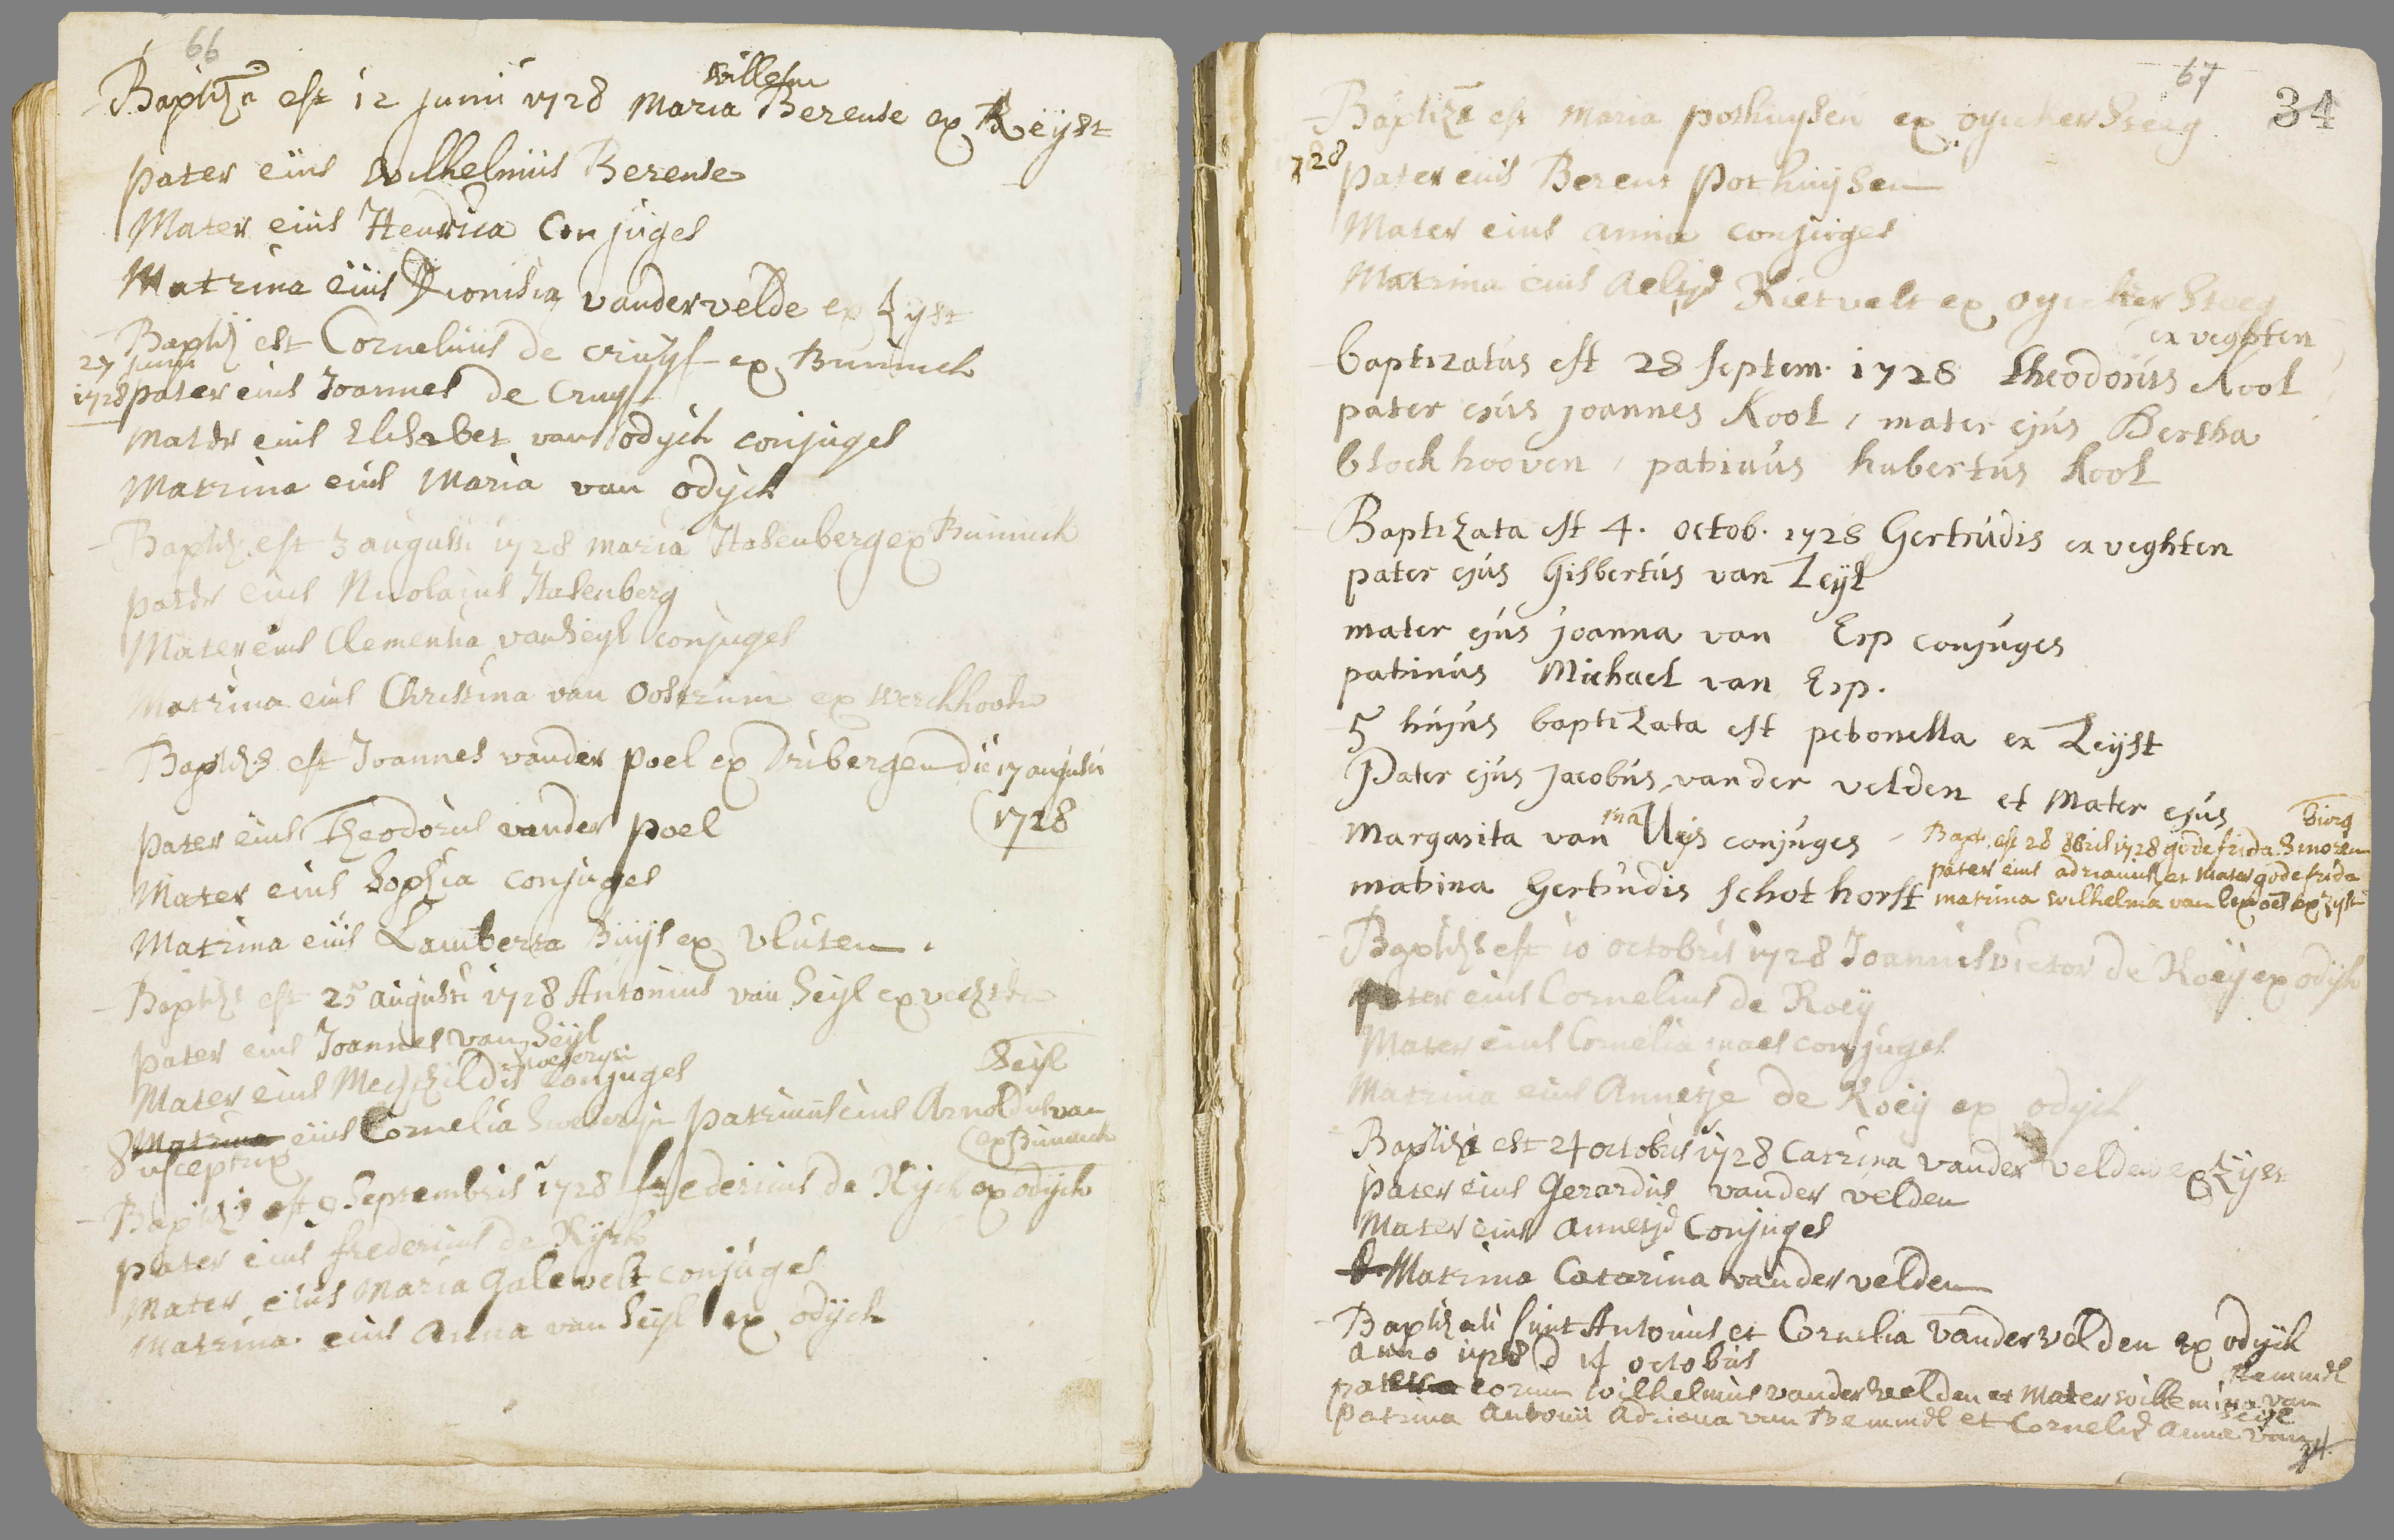 66
willem
Baptiza est 12 junii 1728 Maria Berense ex Reijst
pater eius Wilhelmus Berense
Mater eius Hendrica Conjuges
Matrina eius Dionisia vandervelde ex Zyst
Baptiz est Cornelius de cruyf ex Bunnick
27 junii
1728 pater eius Joannes de Cruyf
mater eius Elisabet van odych conjuges
Matrina eius Maria van odijck
Baptiz. est 3 augusti 1728 maria Hasenberg ex Bunnick
pater eius Nicolaius Hasenberg
Mater eius Clementia van Seyl conjuges
Matrina eius Christina van Oostrum ex werckhoven
Baptizs est Joannes vander poel ex Dribergen die 17 augusti
1728
pater eius Theodorus vander poel
Mater eius Sophia conjuges
Matrina eius Lamberta Buys ex vluten.
Baptizs est 25 augusti 1728 Antonius van Seyl ex vechten
pater eius Joannes van Seyl
Mater eius Mechtildis conjuges
Seyl
Matrina eius Cornelia Sweseryn patrinus eius Arnoldus van
Susceptrix
ex Bunnick
Baptizs est 9 Septembris 1728 fredericus de Rijck ex odyck
pater eius fredericus de Rijck
Mater eius Maria Galevelt conjuges
Matrina eius Anna van Seyl ex odijck
67
34
Baptiza est Maria pothuysen ex oyckersteeg
728
pater eius Berent pothuijsen
Mater eius anna conjuges
Matrina eius Aeltjd Rietvelt ex oyckersteeg
ex veghten
baptizatus est 28 septem. 1728 theodorus kool
pater ejus joannes kool, mater ejus Bertha
blockhooven, patrinus hubertus kool
Baptizata est 4. octob. 1728 Gertrudis ex veghten
pater ejus Gisbertus van Zeyl
mater ejus joanna van Erp conjuges
patrinus Michael van Erp.
5 hujus baptizata est petronella ex Zeijst
Pater ejus jacobus van der velden et Mater ejus
Margarita van Uijs conjuges
matrina Gertrudis schothorst
burg
Bapt. est 28 8bris 1728 godefrida Smoren
pater eius adrianus et Mater godefrida
matrina wilhelma van ex zyst
Baptizs est 10 octobris 1728 Joannis victor de Roeij ex odyck
pater eius Cornelius de Roeij
Mater eius Cornelia maes conjuges
Matrina eius Annetje de Roeij ex odijck
Baptiza est 24 octobris 1728 Catrina vander velden ex Zyst
pater eius Gerardus vander velden
Mater eius annetjd Conjuges
Matrina Catarina vander velden
Baptizati sunt Antonius et Cornelia vander velden ex odijck
anno 1728 d 14 octobris
Bemmel
pater eorum wilhelmus vander velden et Mater willemina van
Seyl
patrina Antonii Adriana van Bemmel et Corneliae Anna van
34.